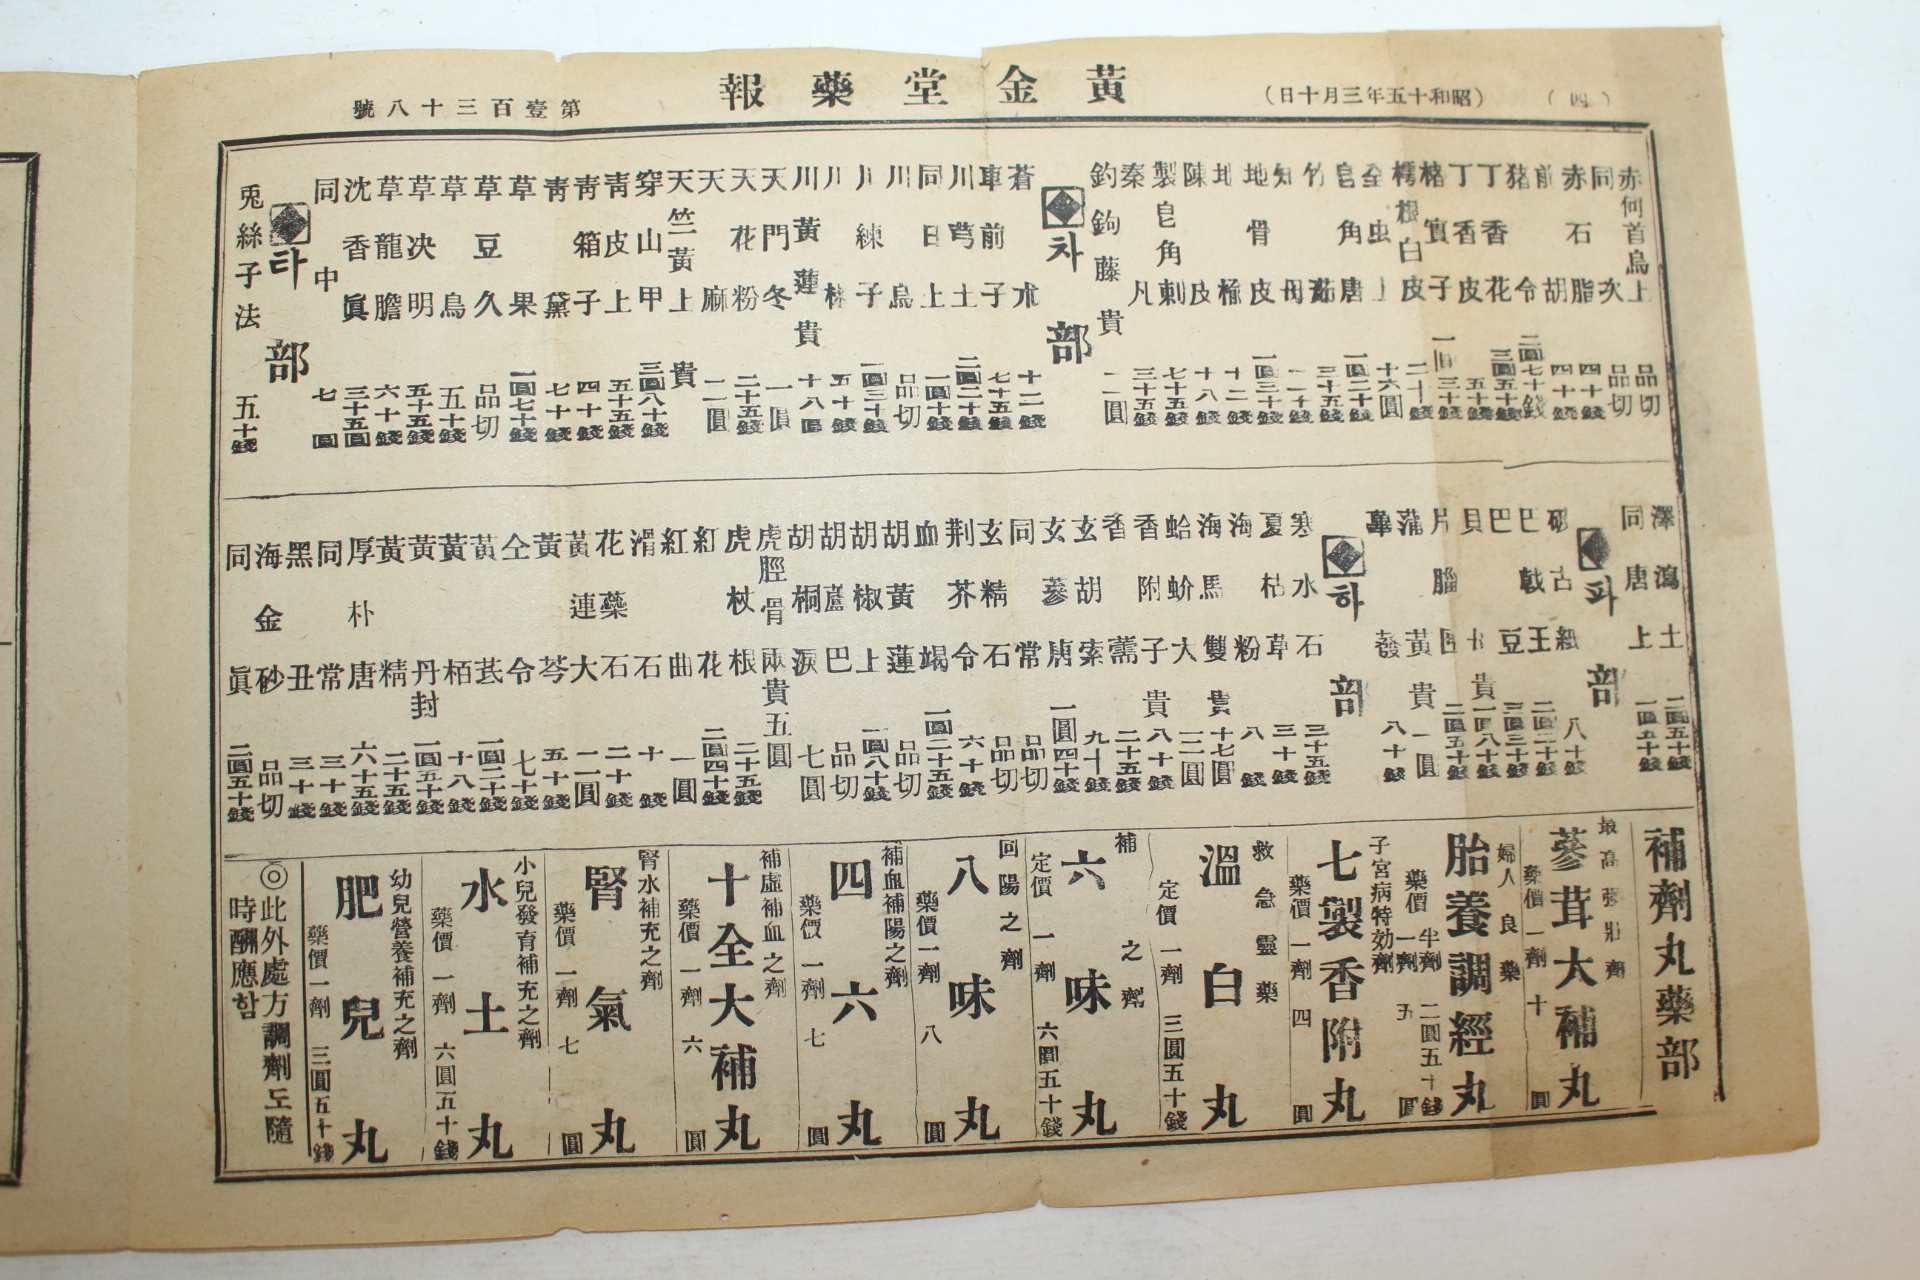 （四）
（昭和十五年三月十日）
黃金堂藥報
第壹百三十八號
赤何首烏上 品切
同 次 品切
赤石脂 四十錢
前胡 四十錢
猪令 二圓七十錢
丁香花 三圓五十錢
丁香皮 五十錢
楮實子 一圓三十錢
樗根白皮 二十錢
全虫上 十六圓
皂角唐 一圓二十錢
竹茹 三十五錢
知母 二十錢
地骨皮 一圓三十錢
地楡 十二錢
陳皮 十八錢
製皂角刺 七十五錢
秦凡 三十五錢
釣鉤藤貴 二圓
차部
蒼朮 十二錢
車前子 七十五錢
川芎土 二圓二十錢
同日上 一圓十錢
川烏 品切
川練子 一圓三十錢
川椒 五十錢
川黃蓮貴 十八圓
天門冬 一圓
天花粉 二十五錢
天麻 二圓
天竺黃上貴
穿山甲 三圓八十錢
靑皮上 五十五錢
靑箱子 四十錢
靑黛 七十錢
草果 一圓七十錢
草豆久 品切
草烏 五十錢
草决明 五十五錢
草龍膽 六十錢
沈香眞 三十五圓
同中 七圓
타部
兎絲子法 五十錢
澤瀉土 二圓五十錢
同唐上 一圓五十錢
파部
破古紙 八十錢
巴戟王 二圓二十錢
巴豆 三圓三十錢
貝母貴 一圓八十錢
片腦 二圓五十錢
蒲黃貴 一圓
萆薢 八十錢
하部
寒水石 三十五錢
夏枯草 三十錢
海粉 八錢
海馬雙貴 十七圓
蛤蚧大 二圓
香附子貴 八十錢
香薷 二十五錢
玄胡索 九十錢
玄蔘唐 一圓四十錢
同常 品切
玄精石 品切
荆芥令 六十錢
血竭 一圓二十五錢
胡黃蓮 品切
胡椒上 一圓八十錢
胡蘆巴 品切
胡桐淚 七圓
虎脛骨兩貴五圓
虎杖根 二十五錢
紅花 二圓四十錢
紅曲 一圓
滑石 十錢
花藥石 二十錢
黃連大 二圓
黃芩 五十錢
仝令 七十錢
黃芪 一圓二十錢
黃栢 十八錢
黃丹封 一圓五十錢
黃精 二十五錢
厚朴唐 六十五錢
同常 三十錢
黑丑 三十錢
海金砂 品切
同眞 二圓五十錢
補劑丸藥部
最高强壯劑
蔘茸大補丸
藥價一劑 十圓
婦人良藥
胎養調經丸
藥價 半劑 二圓五十錢
一劑 五圓
子宮病特効劑
七製香附丸
藥價一劑 四圓
救急靈藥
溫白丸
定價一劑 三圓五十錢
補之劑
六味丸
定價一劑 六圓五十錢
回陽之劑
八味丸
藥價一劑 八圓
補血補陽之劑
四六丸
藥價一劑 七圓
補虛補血之劑
十全大補丸
藥價一劑 六圓
腎水補充之劑
腎氣丸
藥價一劑 七圓
小兒發育補充之劑
水土丸
藥價一劑 六圓五十錢
幼兒營養補充之劑
肥兒丸
藥價一劑 三圓五十錢
◎此外處方調劑도隨
時酬應함